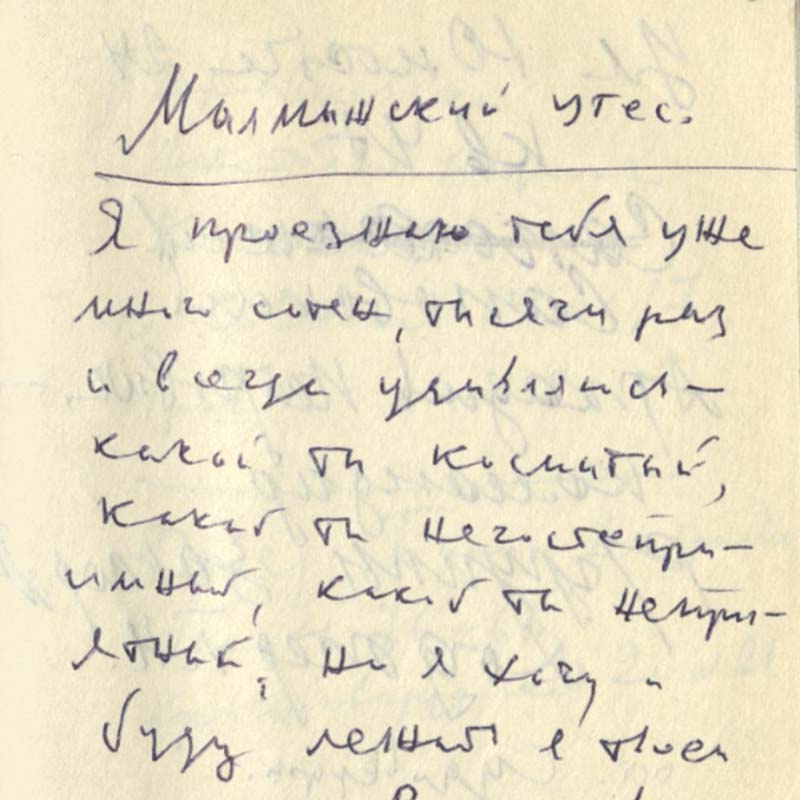 Малмыжский утес.
Я проезжаю тебя уже
много сотен, тысячи раз
и всегда удивляюсь –
какой ты косматый,
какой ты негостепри-
имный, какой ты непри-
ятный, но я хочу и
буду лежать в твоем